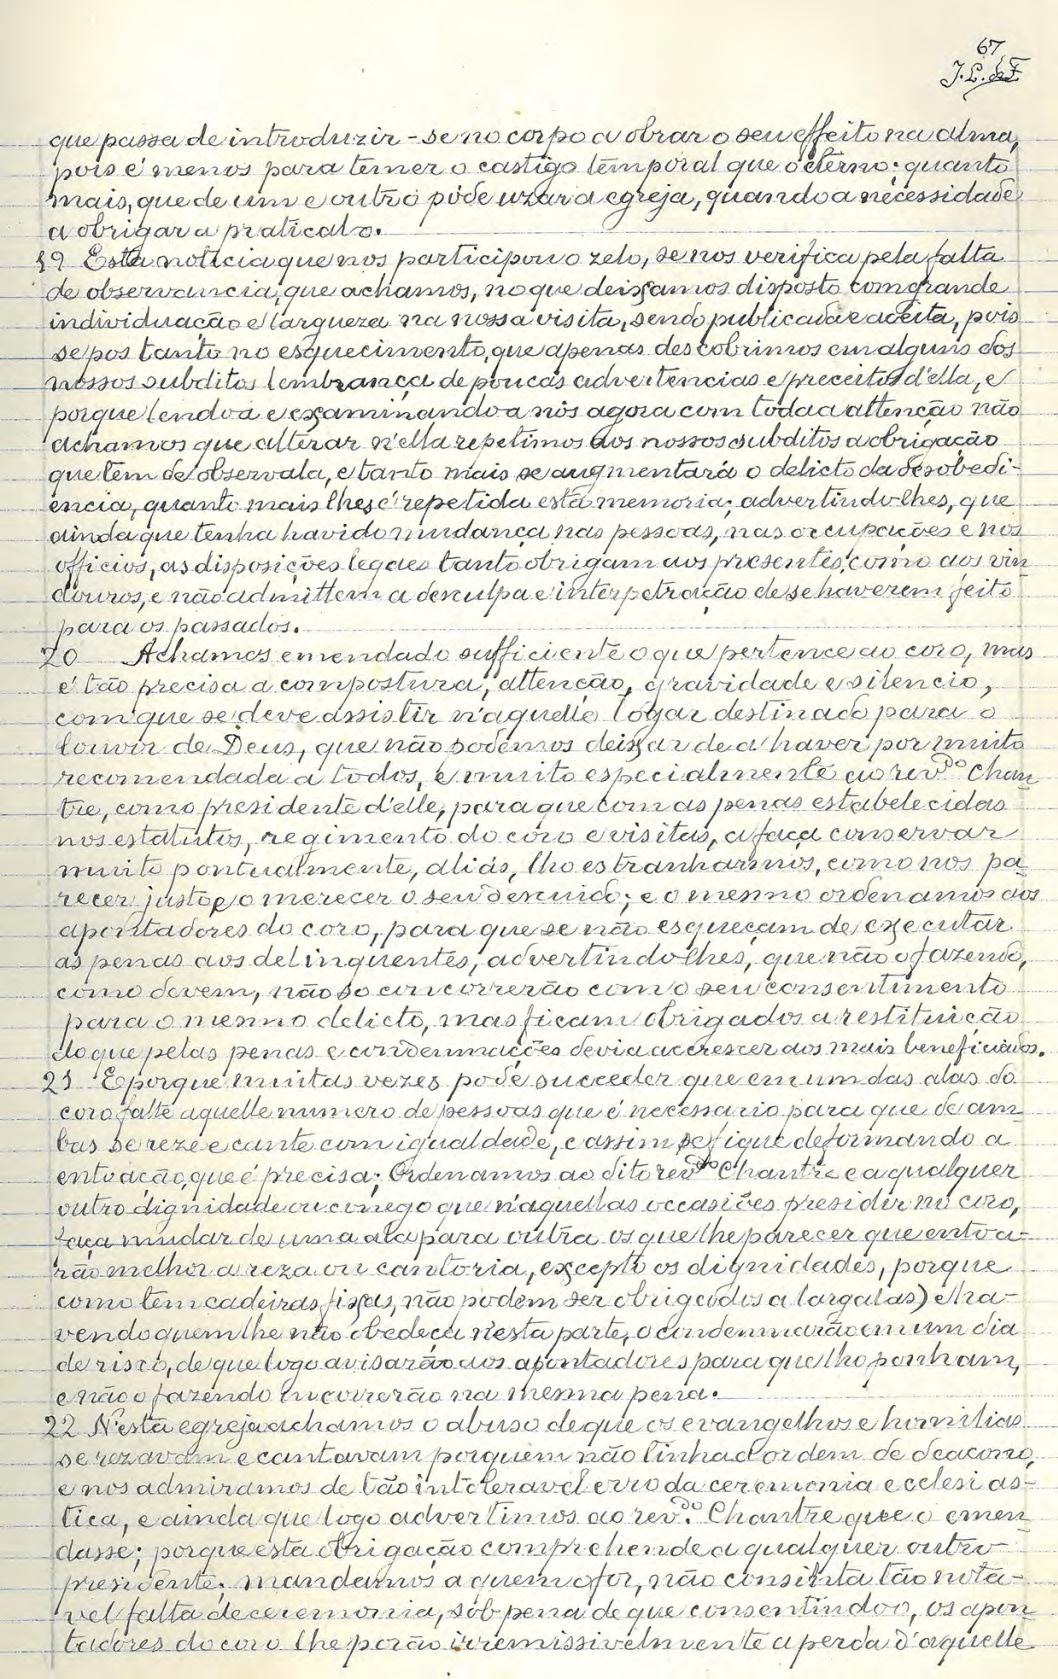 67
J. L. de F.
que passa de introduzir-se no corpo a obrar o seu effeito na alma,
pois é menos para temer o castigo temporal que o eterno; quanto
mais, que de um e outro póde uzar a egreja, quando a necessidade
a obrigar a praticalo.
19 Esta noticia que nos participou o zelo, se nos verifica pela falta
de observancia, que achamos, no que deixamos disposto com grande
individuação e largueza na nossa visita, sendo publicada e aceita, pois
se pos tanto no esquecimento, que apenas descobrimos em alguns dos
nossos subditos lembrança de poucas advertencias e preceitos d'ella, e
porque lendo-a e examinando a nós agora com toda a attenção não
achamos que alterar n'ella repetimos aos nossos subditos a obrigação
que têm de observala, e tanto mais se augmentará o delicto da desobedi-
encia, quanto mais lhes é repetida esta memoria; advertindolhes, que
ainda que tenha havido mudança nas pessoas, nas occupações e nos
officios, as disposições legaes tanto obrigam aos presentes, como aos vin
douros, e não admittem a desculpa e interpetração de se haverem feito
para os passados.
20 Achamos emendado sufficiente o que pertence ao coro, mas
é tão precisa a compostura, attenção, gravidade e silencio,
com que se deve assistir n'aquelle logar destinado para o
louvor de Deus, que não podemos deixar de a haver por muito
recomendada a todos, e muito especialmente ao revdo Chan
tre, como presidente d'elle, para que com as penas estabelecidas
nos estatutos, regimento do côro e visitas, a faça conservar
muito pontualmente, aliás, lho estranharemos, como nos pa-
recer justo, e o merecer o seu descuido; e o mesmo ordenamos aos
apontadores do coro, para que se não esqueçam de executar
as penas aos delinquentes, advertindolhes, que não o fazendo,
como devem, não só concorrerão com o seu consentimento
para o mesmo delicto, mas ficam obrigados a restituição
do que pelas penas e condemnações devia accrescer aos mais beneficiados.
21 E porque muitas vezes póde succeder que em um das alas do
coro falte aquelle numero de pessoas que é necessario para que de am-
bas se reze e cante com igualdade, e assim se fique deformando a
entoação, que é precisa; Ordenamos ao dito revdo Chantre e a qualquer
outro dignidade ou conego que n'aquellas occasiões presidir no coro,
faça mudar de uma ala para outra os que lhe parecer que entoa-
rão melhor a reza ou cantoria, excepto os dignidades, porque
como têm cadeiras fixas, não podem ser obrigados a largalas) e ha-
vendo quem lhe não obedeça n'esta parte, o condemnarão em um dia
de risco, de que logo avisarão aos apontadores para que lho ponham,
e não o fazendo incorrerão na mesma pena.
22 N'esta egreja achamos o abuso de que os evangelhos e homilias
se rezavam e cantavam por quem não tinha d'ordem de deacono,
e nos admiramos de tão intoleravel erro da ceremonia ecclesias-
tica, e ainda que logo advertimos ao revdo. Chantre que o emen-
dasse; porque esta obrigação comprehende a qualquer outro
presidente; mandamos a quem o for, não consinta tão nota-
vel falta de ceremonia, sób pena de que consentindoo, os apon-
tadores do coro lhe porão irremissivelmente a perda d'aquelle